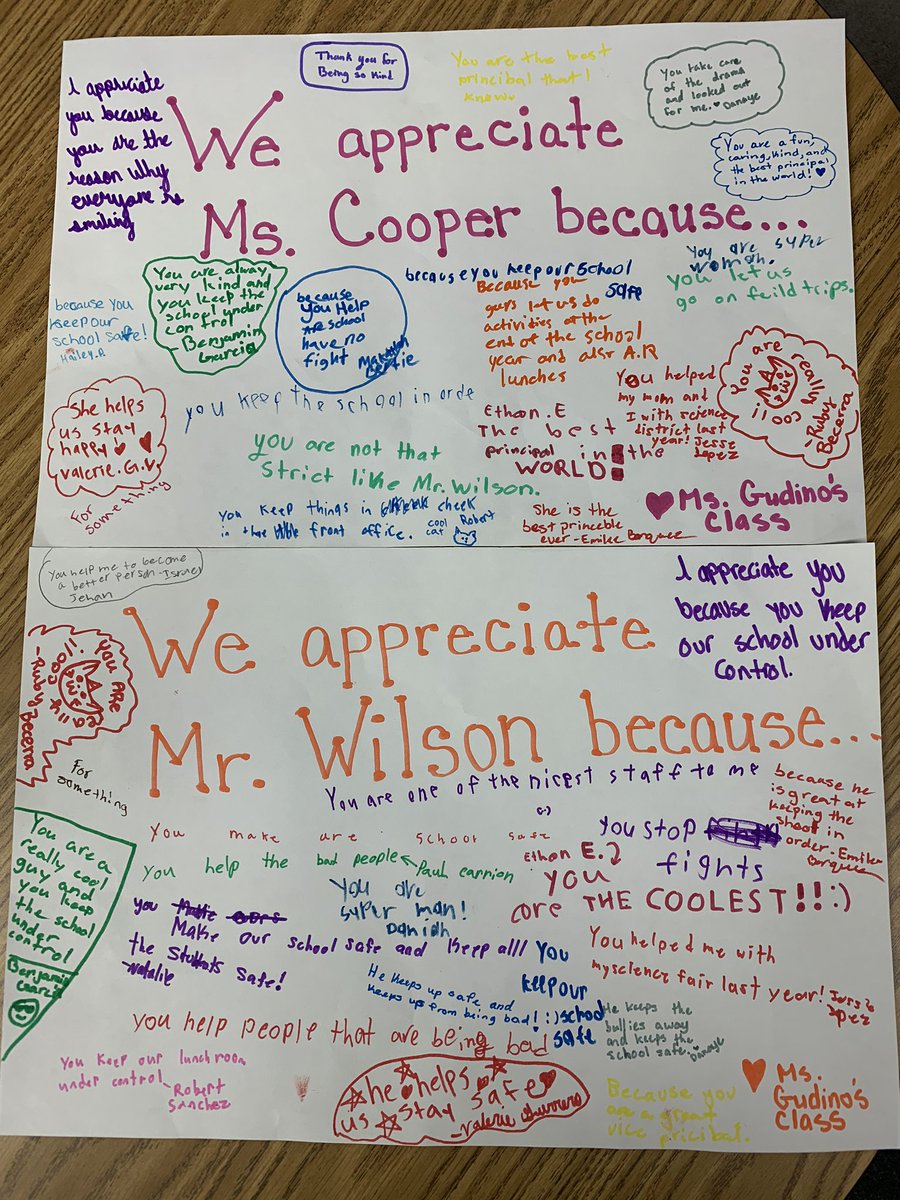 I appriciate
you because
you are the
reason why
everyone is
smiling
Thank you for
Being so kind
You are the best
principal that I
know
You take care
of the drama
and looked out
for me. Danaye
We appreciate
Ms. Cooper because...
You are a fun,
caring, kind, and
the best principal
in the world!
because you
keep our
school safe!
Hailey.R
You are alway
very kind and
you keep the
school under
control
- Benjamin
Garcia
because
you Help
are school
have no
fight
because you keep our school
safe
Because you
guys let us do
activities at the
end of the school
year and also A.R
lunches
You are super
woman.
you let us
go on feild trips.
You are
really
coo
ll
-Ruby
Becerra
She helps
us stay
happy
valerie.G.V
For
something
you keep the school in orde
you are not that
strict like Mr. Wilson.
Ethan .E
The best
principal in the
WORLD!
You helped
my mom and
I with science
district last
year! Jesse
Lopez
you keep things in cheek
in the front office.
cool
cat
Robert
She is the
best princeble
ever -Emilee
Ms. Gudino's
class
You help me to become
a better person -Israel
Jehan
We appreciate
Mr. Wilson because...
I appreciate you
because you keep
our school under
control.
You ARE
really
cooll
-Ruby Becerra
For
something
You are one of the nicest staff to me
:)
because he
is great at
keeping the
shool in
order. - Emilee
You make are school safe
You help the bad people
Paul carrion
Ethan E.
you
are THE COOLEST!!:)
you stop
fights
You are a
really cool
guy and
you keep
the school
under
control
Benjamin
Garcia
You are
syper man!
Daniah
you
Make our school safe and keep alll
the students safe!
-Natalie
He keeps up safe and
keeps up from being bad! :)
you
keep our
school
safe
You helped me with
my science fair last year! Jesse
Lopez
you help people that are being bad
He keeps the
bullies away
and keeps the
school safe. Danaye
You keep our lunchroom
under control
- Robert
Sanchez
he helps
us stay safe
-valerie
Because you
are a great
vice pricibal.
Ms.
Gudino's
class